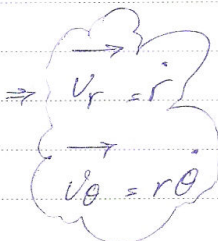 ⇒ $\overrightarrow{v_r} = \dot{r}$
$\overrightarrow{v_\theta} = r\dot{\theta}$